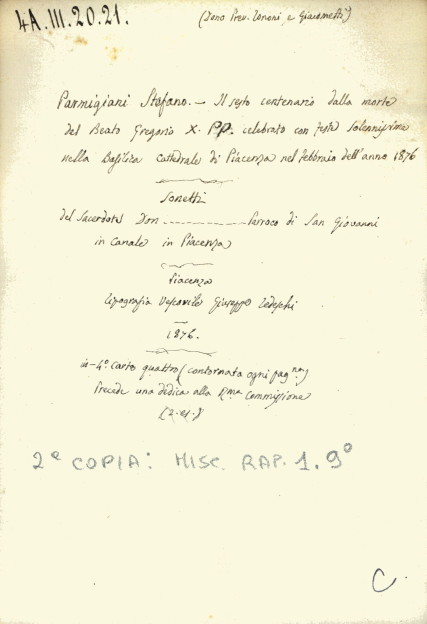 4A.III.20.21.
(Dono Prev. Tononi, e Giacometti)
Parmigiani Stefano. — Il sesto centenario dalla morte
del Beato Gregorio X. PP. celebrato con feste solennissime
nella Basilica Cattedrale di Piacenza nel febbraio dell'anno 1876
Sonetti
del Sacerdote Don Parroco di San Giovanni
in Canale in Piacenza
Piacenza
Tipografia Vescovile Giuseppe Tedeschi
1876.
in-4º. Carte quattro (contornata ogni pagna)
Precede una dedica alla Rma Commissione
(2. es.)
2ª COPIA: MISC. RAP. 1. 9º
C.